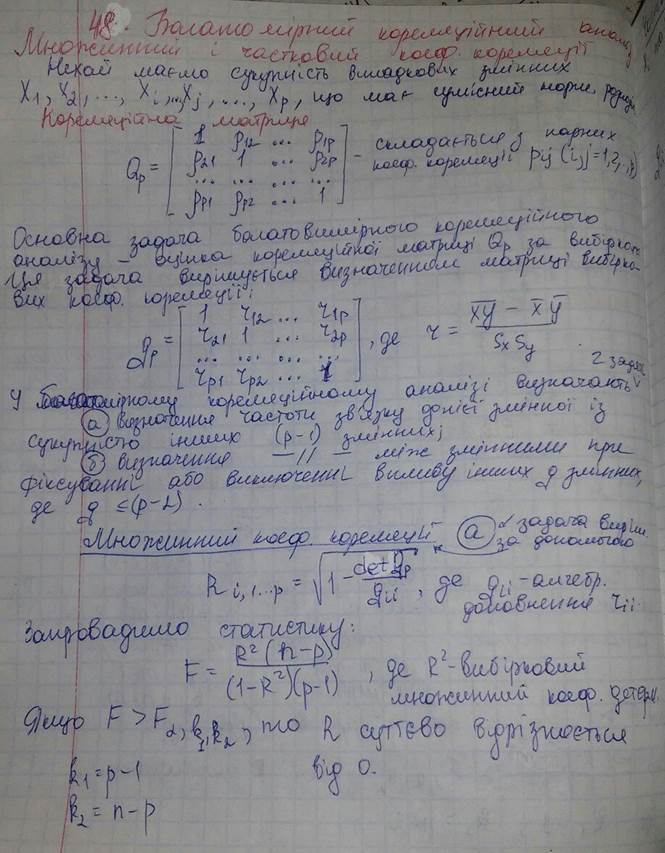 48. Багатомірний кореляційний аналіз
Множинний і частковий коеф. кореляції
Нехай маємо сукупність випадкових змінних
X₁, X₂, ..., Xᵢ, ..Xⱼ, ..., Xₚ, що має сумісний норм. розподіл
Кореляційна матриця
Qₚ = [ 1 ρ₁₂ ... ρ₁ₚ
ρ₂₁ 1 ... ρ₂ₚ
... ... ... ...
ρₚ₁ ρₚ₂ ... 1 ] – складається з парних
коеф. кореляції ρij (i,j=1,2,..,p)
Основна задача багатовимірного кореляційного
аналізу – оцінка кореляційної матриці Qₚ за вибіркою
Ця задача вирішується визначенням матриці вибірко-
вих коеф. кореляції:
qₚ = [ 1 r₁₂ ... r₁ₚ
r₂₁ 1 ... r₂ₚ
... ... ... ...
rₚ₁ rₚ₂ ... 1 ] , де r = (x̅y̅ – x̅ y̅) / (Sx Sy)
2 задачі
У багатомірному кореляційному аналізі визначають
а) визначення частоти зв'язку однієї змінної із
сукупністю інших (p-1) змінних;
б) визначення —//— між змінними при
фіксуванні або виключенні впливу інших q змінних,
де q ≤ (p-2).
Множинний коеф. кореляції
а) задача виріш.
за допомогою
R i,1...p = √(1 – det qₚ / qii) , де qii - алгебр.
доповнення rii.
Запровадимо статистику:
F = R²(n-p) / (1-R²)(p-1) , де R² - вибірковий
множинний коеф. детерм.
Якщо F > F α, k₁,k₂, то R суттєво відрізняється
від 0.
k₁ = p-1
k₂ = n-p